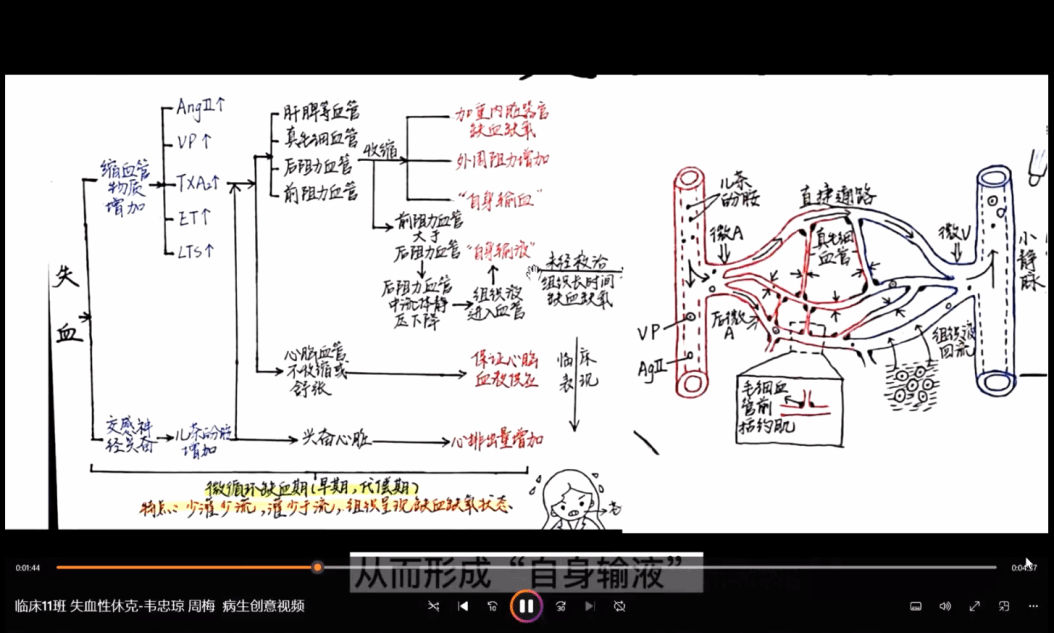 AngⅡ↑
VP↑
缩血管
物质
增加
TXA₂↑
ET↑
LTS↑
失
血
交感神
经兴奋
儿茶酚胺
增加
肝脾等血管
真毛细血管
后阻力血管
前阻力血管
收缩
加重内脏器官
缺血缺氧
外周阻力增加
“自身输血”
前阻力血管
大于
后阻力血管
“自身输液”
后阻力血管
中流体静
压下降
组织液
进入血管
未经救治
组织长时间
缺血缺氧
临床
表现
心脑血管
不收缩或
舒张
保证心脑
血液供应
兴奋心脏
心排出量增加
微循环缺血期(早期,代偿期)
特点:少灌少流,灌少于流,组织呈现缺血缺氧状态.
儿茶
酚胺
直捷通路
微A
真毛细
血管
微V
小静脉
后微
A
VP
AngⅡ
组织液
回流
毛细血
管前
括约肌
从而形成“自身输液”
0:01:44
临床11班 失血性休克-韦忠琼 周梅 病生创意视频
10
30